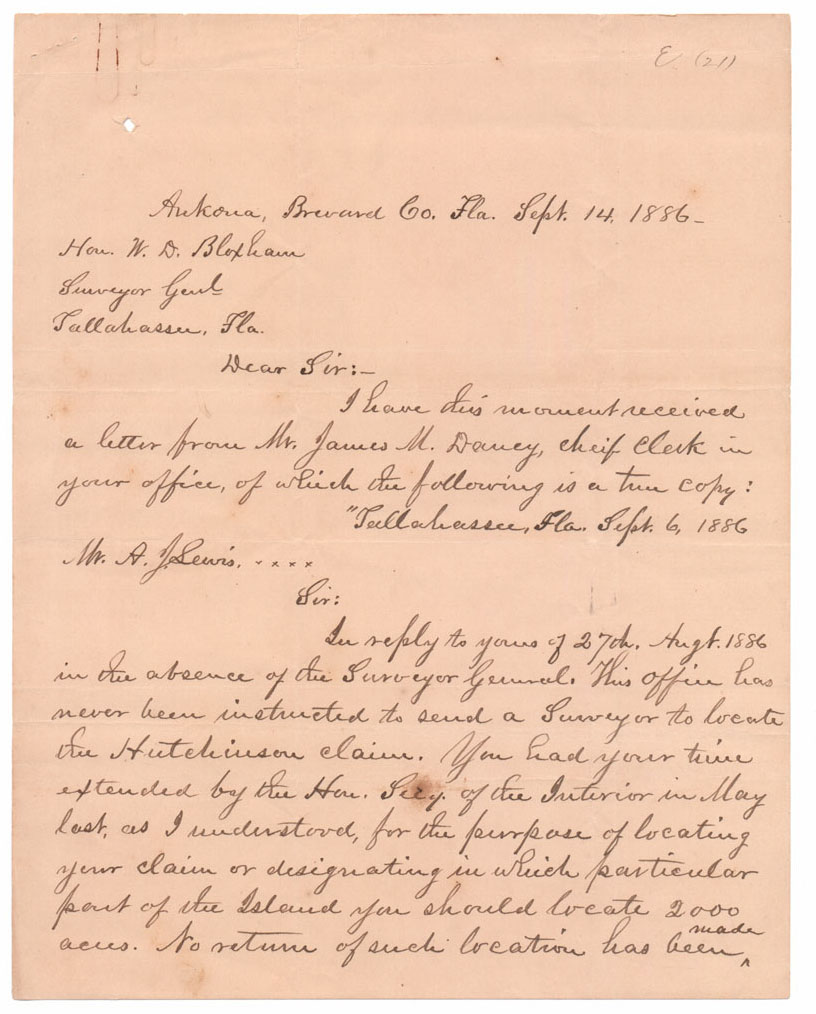 E (21)
Ankona, Brevard Co. Fla. Sept. 14, 1886—
Hon. W. D. Bloxham
Surveyor Genl
Tallahassee, Fla.
Dear Sir:—
I have this moment received
a letter from Mr. James M. Dancy, cheif Clerk in
your office, of which the following is a true copy:
"Tallahassee, Fla. Sept. 6, 1886
Mr. A. J. Lewis. × × × ×
Sir:
In reply to yours of 27th. Augt. 1886
in the absence of the Surveyor General. This office has
never been instructed to send a Surveyor to locate
the Hutchinson claim. You had your time
extended by the Hon. Secy. of the Interior in May
last, as I understood, for the purpose of locating
your claim or designating in which particular
part of the Island you should locate 2000
acres. No return of such location has been ^ made